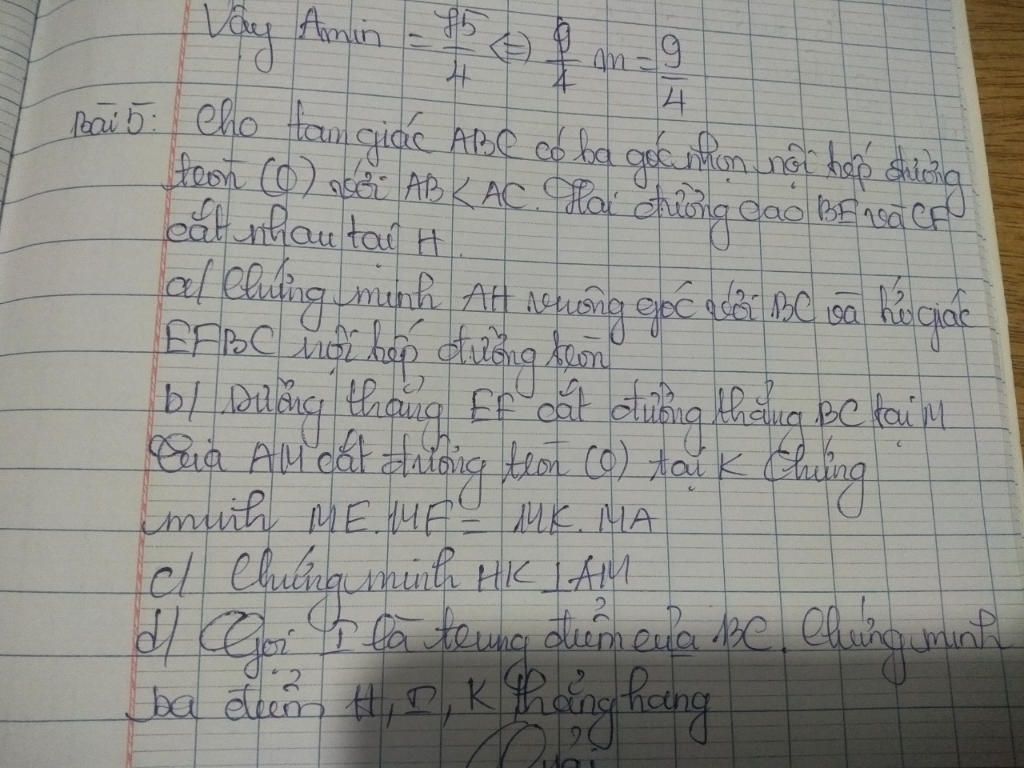 Vậy Amin = 45/4 <=> 9/4 m = 9/4
Bài 5: Cho tam giác ABC có ba góc nhọn nội tiếp đường
tròn (O) với AB < AC. Hai đường cao BE và CF
cắt nhau tại H.
a/ Chứng minh AH vuông góc với BC và tứ giác
EFBC nội tiếp đường tròn
b/ Đường thẳng EF cắt đường thẳng BC tại M
Của AM cắt đường tròn (O) tại K Chứng
minh ME.MF = MK.MA
c/ Chứng minh HK ⊥ AM
d/ Gọi I là trung điểm của BC. Chứng minh
ba điểm H, I, K thẳng hang